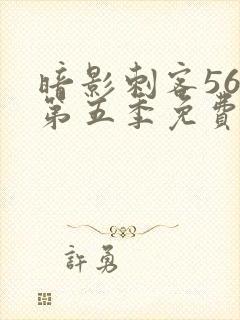 暗影刺客56
第五季免費
許勇